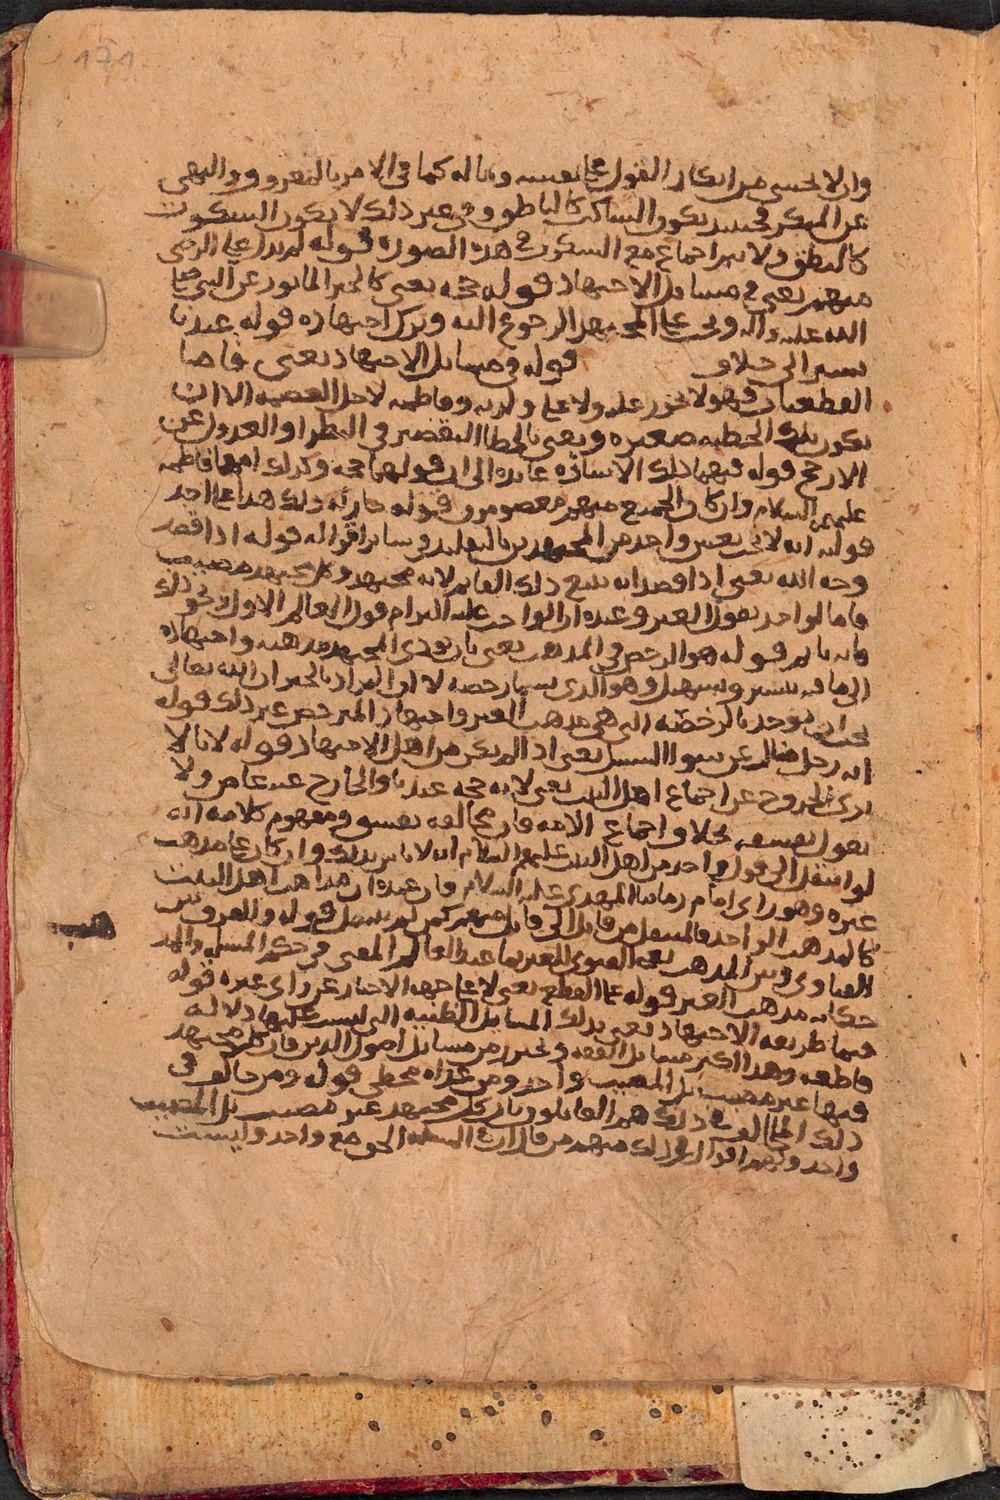 وان لا يخشى من انكار القول على نفسه وماله كما في الامر بالمعروف والنهي
عن المنكر فحينئذ يكون الساكت كالناطق وفي غير ذلك لا يكون السكوت
كالنطق ولا اجماع مع السكوت في هذه الصورة قوله لم يدل على الرضى
منهم يعني في مسائل الاجتهاد قوله حجة يعني كالخبر الماثور عن النبي صلى
الله عليه واله وجب على المجتهد الرجوع اليه وترك اجتهاده قوله عندنا
يشير الى خلاف قوله في مسائل الاجتهاد يعني فاما
القطعيات فهو لا يجوز عليه ولا على ولديه وفاطمة لاجل العصمة الا ان
تكون تلك الخطية صغيرة ويعني بالخطا التقصير في النظر او العدول عن
الارجح قوله فيهما ذلك الاشارة عائدة الى ان قولهما حجة وكذلك امهما فاطمة
عليهم السلام وان كان الجميع منهم معصومون قوله جاز له ذلك هذا على احد
قوليه انه لا يجب تعيين واحد من المجتهدين بالتقليد في سائر اقواله قوله اذا قصد
وجه الله يعني اذا قصد انه يتبع ذلك العالم لانه مجتهد وكل مجتهد مصيب
فاما لو اخذ بقول الغير وعنده ان الواجب عليه التزام قول العالم الاول ونحو ذلك
فانه ياثم قوله هو الرخص في المذهب يعني بان يؤدي المجتهد مذهبه واجتهاده
الى ما فيه تيسير وتسهيل وهو الذي يسمى رخصه لا ان المراد بالخبر ان الله تعالى
يحب ان يوخذ بالرخصة التي هي مذهب الغير واجتهاد المترخص غير ذلك قوله
انه رجل ضال عن سواء السبيل يعني اذا لم يكن من اهل الاجتهاد قوله لانا لا
نرى الخروج عن اجماع اهل البيت يعني لانه حجة عندنا والخارج عنه عاص ولا
نقول بفسقه بخلاف اجماع الامة فان مخالفه يفسق ومفهوم كلامه انه
لو انتقل الى قول واحد من اهل البيت عليهم السلام انه لا باس بذلك وان كان على مذهب
غيره وهو راي امام زماننا المهدي عليه السلام فان عنده ان مذاهب اهل البيت
كالمذهب الواحد فالمنتقل من قائل الى قائل منهم كمن لم ينتقل قوله والفرق بين
الفتاوى وبين المذهب يعني الفتوى للغير بما عند العالم المفتي في حكم المسئلة والمذ
حكاية مذهب الغير قوله على القطع يعني لا على جهة الاخبار عن راي غيره قوله
فيما طريقه الاجتهاد يعني بذلك المسائل الظنية التي ليست عليها دلالة
قاطعة وهذا اكثر مسائل الفقه ونحترز من مسائل اصول الدين فان كل مجتهد
فيها غير مصيب بل المصيب واحد ومن عداه مخطي قوله ومن خالف في
ذلك المخالف في ذلك هم القائلون بان كل مجتهد غير مصيب بل المصيب
واحد ولهم اقوال في ذلك منهم من قال ان المسئلة الحق مع واحد وليست